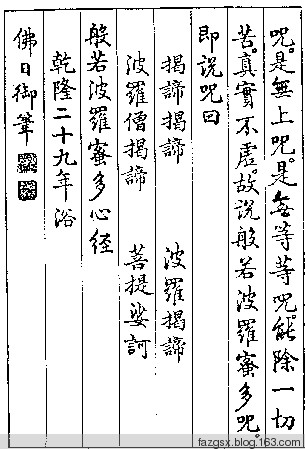 咒。是無上咒。是無等等咒。能除一切
苦。真實不虛。故說般若波羅蜜多咒。
即說咒曰
揭諦揭諦　波羅揭諦
波羅僧揭諦　菩提娑訶
般若波羅蜜多心経
乾隆二十九年浴
佛日御筆
fazgsx.blog.163.com